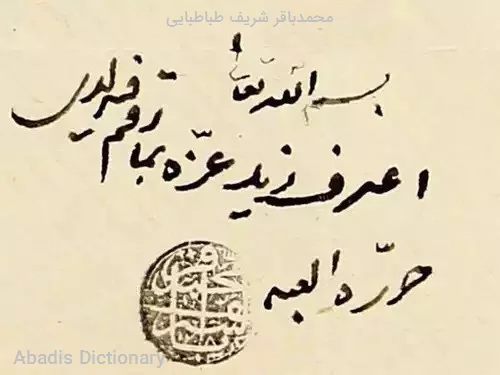 محمدباقر شریف طباطبایی
بسم الله تعالی
اعترف زید عزه بما رقم فیه لدی
حرره العبد
Abadis Dictionary